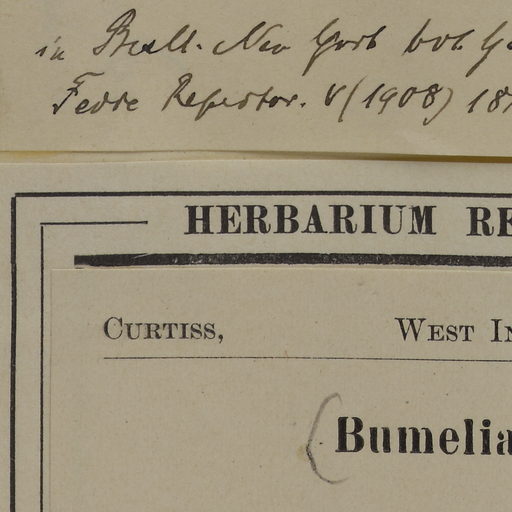 in Bull. New York bot. G
Fedde Repertor. V (1908) 18
HERBARIUM RE
CURTISS, WEST IN
(Bumelia